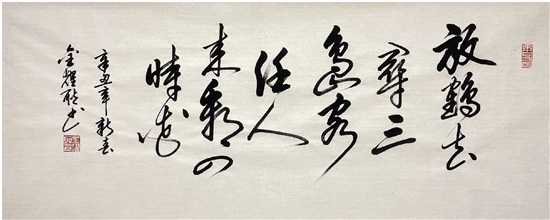 放鶴去
尋三
島客
任人
来看四
時花
辛丑年新春
金耀书